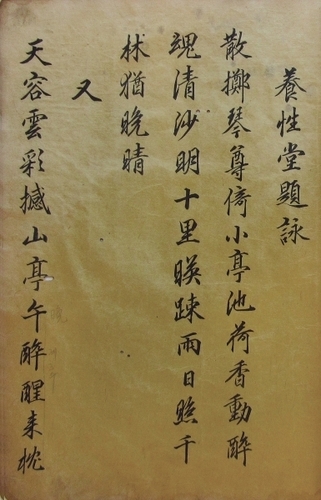 養性堂題詠
散擲琴尊倚小亭池荷香動醉
魂清沙明十里暎踈雨日照千
林猶晩晴
又
天容雲彩撼山亭午醉醒来枕